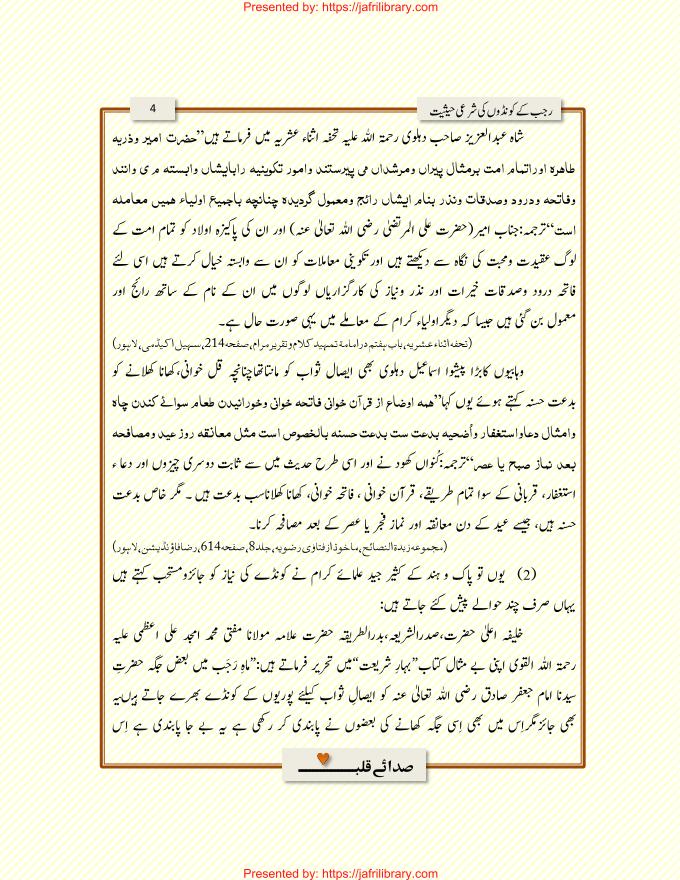 Presented by: https://jafrilibrary.com
رجب کے کونڈوں کی شرعی حیثیت
4
شاہ عبدالعزیز صاحب دہلوی رحمۃ اللہ علیہ تحفہ اثناء عشریہ میں فرماتے ہیں’’حضرت امیر وذریه
طاهره اوراتمام امت برمثال پیراں ومرشداں می پیرستند وامور تکوینیه رابایشاں وابسته می وانند
وفاتحه ودرود وصدقات ونذر بنام ایشاں رائج ومعمول گردیده چنانچه باجمیع اولیاء همیں معامله
است‘‘ترجمہ:جناب امیر(حضرت علی المرتضیٰ رضی اللہ تعالیٰ عنہ) اور ان کی پاکیزہ اولاد کو تمام امت کے
لوگ عقیدت ومحبت کی نگاہ سے دیکھتے ہیں اورتکوینی معاملات کو ان سے وابستہ خیال کرتے ہیں اسی لئے
فاتحہ درود وصدقات خیرات اور نذر ونیاز کی کارگزاریاں لوگوں میں ان کے نام کے ساتھ رائج اور
معمول بن گئی ہیں جیسا کہ دیگراولیاء کرام کے معاملے میں یہی صورت حال ہے۔
(تحفہ اثناء عشریہ،باب ہفتم درامامۃ تمہید کلام وتقریر مرام،صفحہ214،سہیل اکیڈمی،لاہور)
وہابیوں کابڑا پیشوا اسماعیل دہلوی بھی ایصال ثواب کو مانتاتھاچنانچہ قل خوانی،کھانا کھلانے کو
بدعت حسنہ کہتے ہوئے یوں کہا’’همه اوضاع از قرآن خوانی فاتحه خوانی وخورانیدن طعام سوائے کندن چاه
وامثال دعاواستغفار واُضحیه بدعت ست بدعت حسنه بالخصوص است مثل معانقه روز عید ومصافحه
بعد نماز صبح یا عصر‘‘ترجمہ:کُنواں کھود نے اور اسی طرح حدیث میں سے ثابت دوسری چیزوں اور دعاء
استغفار، قربانی کے سوا تمام طریقے، قرآن خوانی ، فاتحہ خوانی، کھانا کھلاناسب بدعت ہیں ۔ مگر خاص بدعت
حسنہ ہیں، جیسے عید کے دن معانقہ اور نماز فجر یا عصر کے بعد مصافحہ کرنا۔
(مجموعہ زبدۃ النصائح،ماخوذازفتاوی رضویہ،جلد8،صفحہ614،رضافاؤنڈیشن،لاہور)
(2) یوں تو پاک و ہند کے کثیر جید علمائے کرام نے کونڈے کی نیاز کو جائزومستحب کہتے ہیں
یہاں صرف چند حوالے پیش کئے جاتے ہیں:
خلیفہ اعلیٰ حضرت،صدرالشریعہ،بدرالطریقہ حضرت علامہ مولانا مفتی محمد امجد علی اعظمی علیہ
رحمۃ اللہ القوی اپنی بے مثال کتاب’’بہارِ شریعت‘‘میں تحریر فرماتے ہیں:’’ماہِ رَجَب میں بعض جگہ حضرتِ
سیدنا امام جعفر صادق رضی اللہ تعالیٰ عنہ کو ایصالِ ثواب کیلئے پوریوں کے کونڈے بھرے جاتے ہیں۔یہ
بھی جائز مگراِس میں بھی اِسی جگہ کھانے کی بعضوں نے پابندی کر رکھی ہے یہ بے جا پابندی ہے اِس
صدائے قلب
Presented by: https://jafrilibrary.com